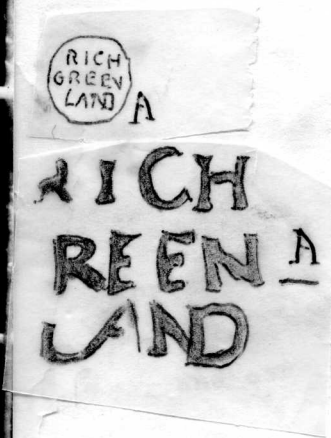 RICH
GREEN
LAND
A
RICH
REEN A
LAND